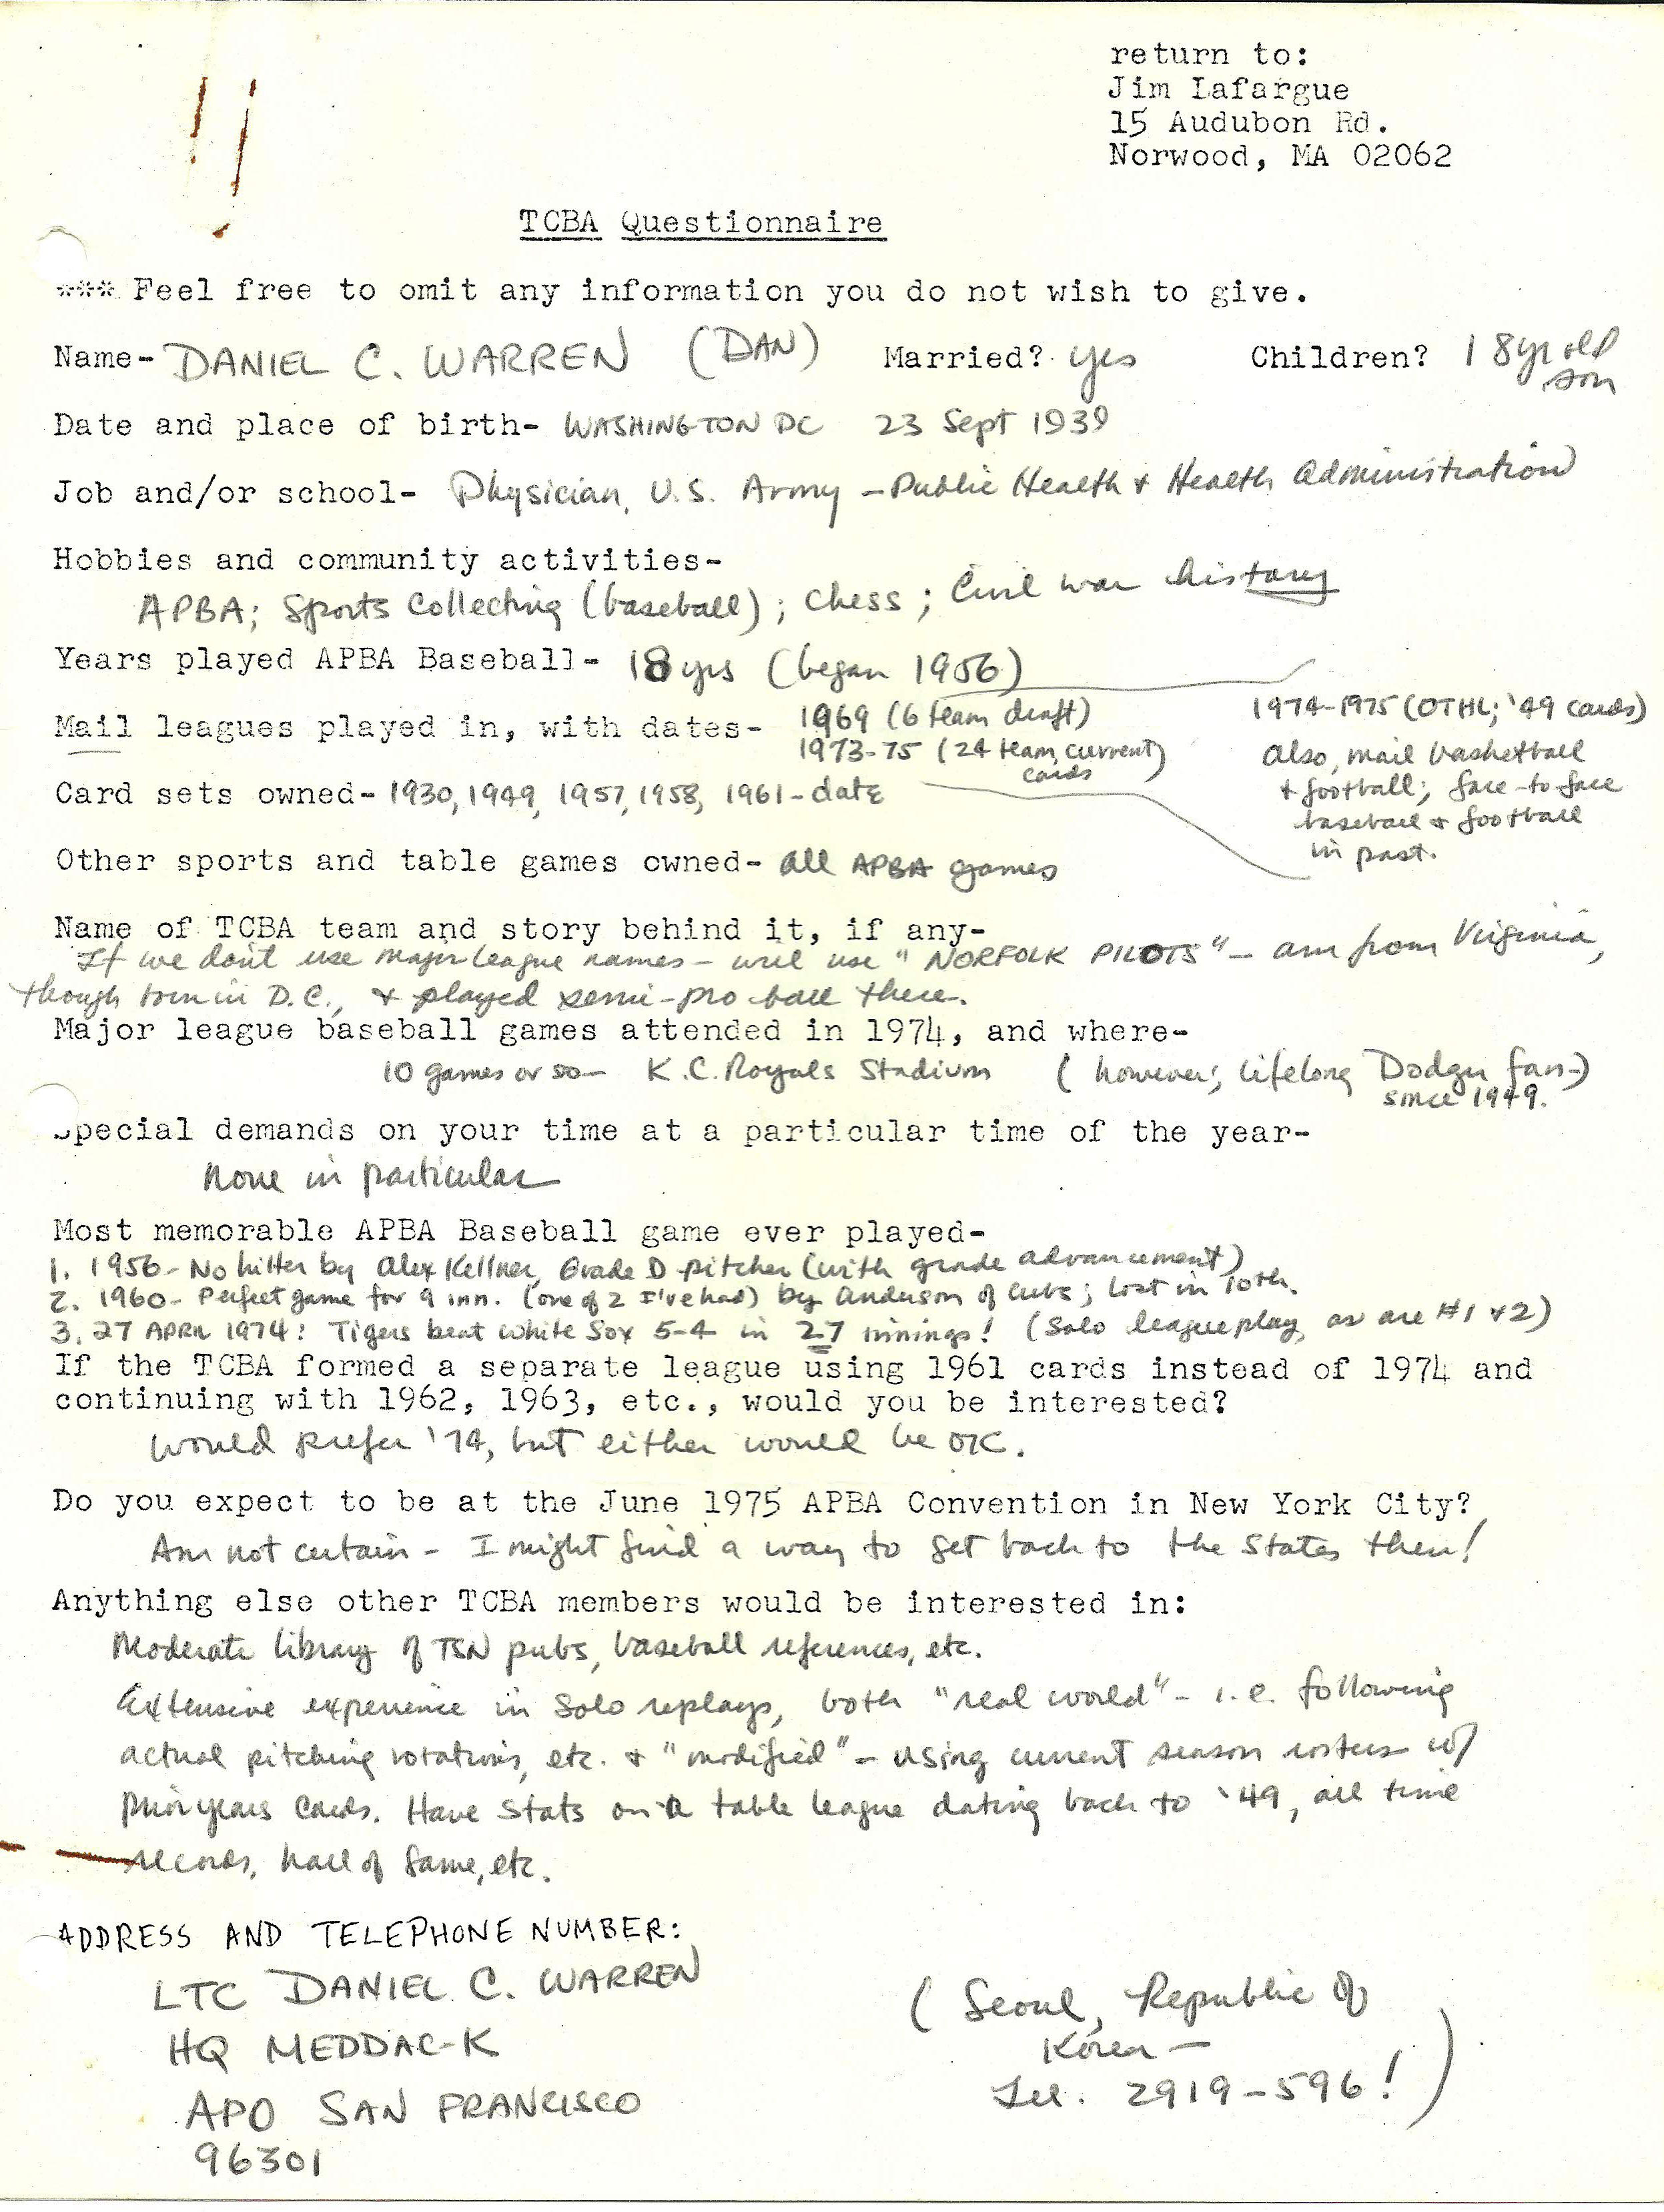 return to:
Jim Lafargue
15 Audubon Rd.
Norwood, MA 02062
TCBA Questionnaire
*** Feel free to omit any information you do not wish to give.
Name- DANIEL C. WARREN (DAN) Married? yes Children? 1 8yr old son
Date and place of birth- WASHINGTON DC 23 Sept 1939
Job and/or school- Physician, U.S. Army - Public Health & Health Administration
Hobbies and community activities-
APBA; Sports Collecting (baseball); Chess; Civil War history
Years played APBA Baseball- 18 yrs (began 1956)
Mail leagues played in, with dates- 1969 (6 team draft)
1973-75 (24 team, current cards)
1974-1975 (OTHL; '49 cards)
Also, mail basketball
& football; face-to-face
baseball & football
in past.
Card sets owned- 1930, 1949, 1957, 1958, 1961-date
Other sports and table games owned- all APBA games
Name of TCBA team and story behind it, if any-
If we don't use major league names - will use "NORFOLK PILOTS" - am from Virginia,
though born in D.C., & played semi-pro ball there.
Major league baseball games attended in 1974, and where-
10 games or so - K.C. Royals Stadium (however, lifelong Dodger fan-)
since 1949.
Special demands on your time at a particular time of the year-
None in particular
Most memorable APBA Baseball game ever played-
1. 1956 - No hitter by Alex Kellner, Grade D pitcher (with grade advancement)
2. 1960 - Perfect game for 9 inn. (one of 2 I've had) by Anderson of Cubs; lost in 10th.
3. 27 APRIL 1974: Tigers beat White Sox 5-4 in 27 innings! (Solo league play, as are #1 & 2)
If the TCBA formed a separate league using 1961 cards instead of 1974 and
continuing with 1962, 1963, etc., would you be interested?
Would prefer '74, but either would be OK.
Do you expect to be at the June 1975 APBA Convention in New York City?
Am not certain - I might find a way to get back to the States then!
Anything else other TCBA members would be interested in:
Moderate library of TSN pubs, baseball references, etc.
Extensive experience in solo replays, both "real world" - i.e. following
actual pitching rotations, etc. & "modified" - using current season rosters w/
prior years cards. Have stats on a table league dating back to '49, all time
records, hall of fame, etc.
ADDRESS AND TELEPHONE NUMBER:
LTC DANIEL C. WARREN
HQ MEDDAC-K
APO SAN FRANCISCO
96301
(Seoul, Republic of
Korea -
Tel. 2919-596!)